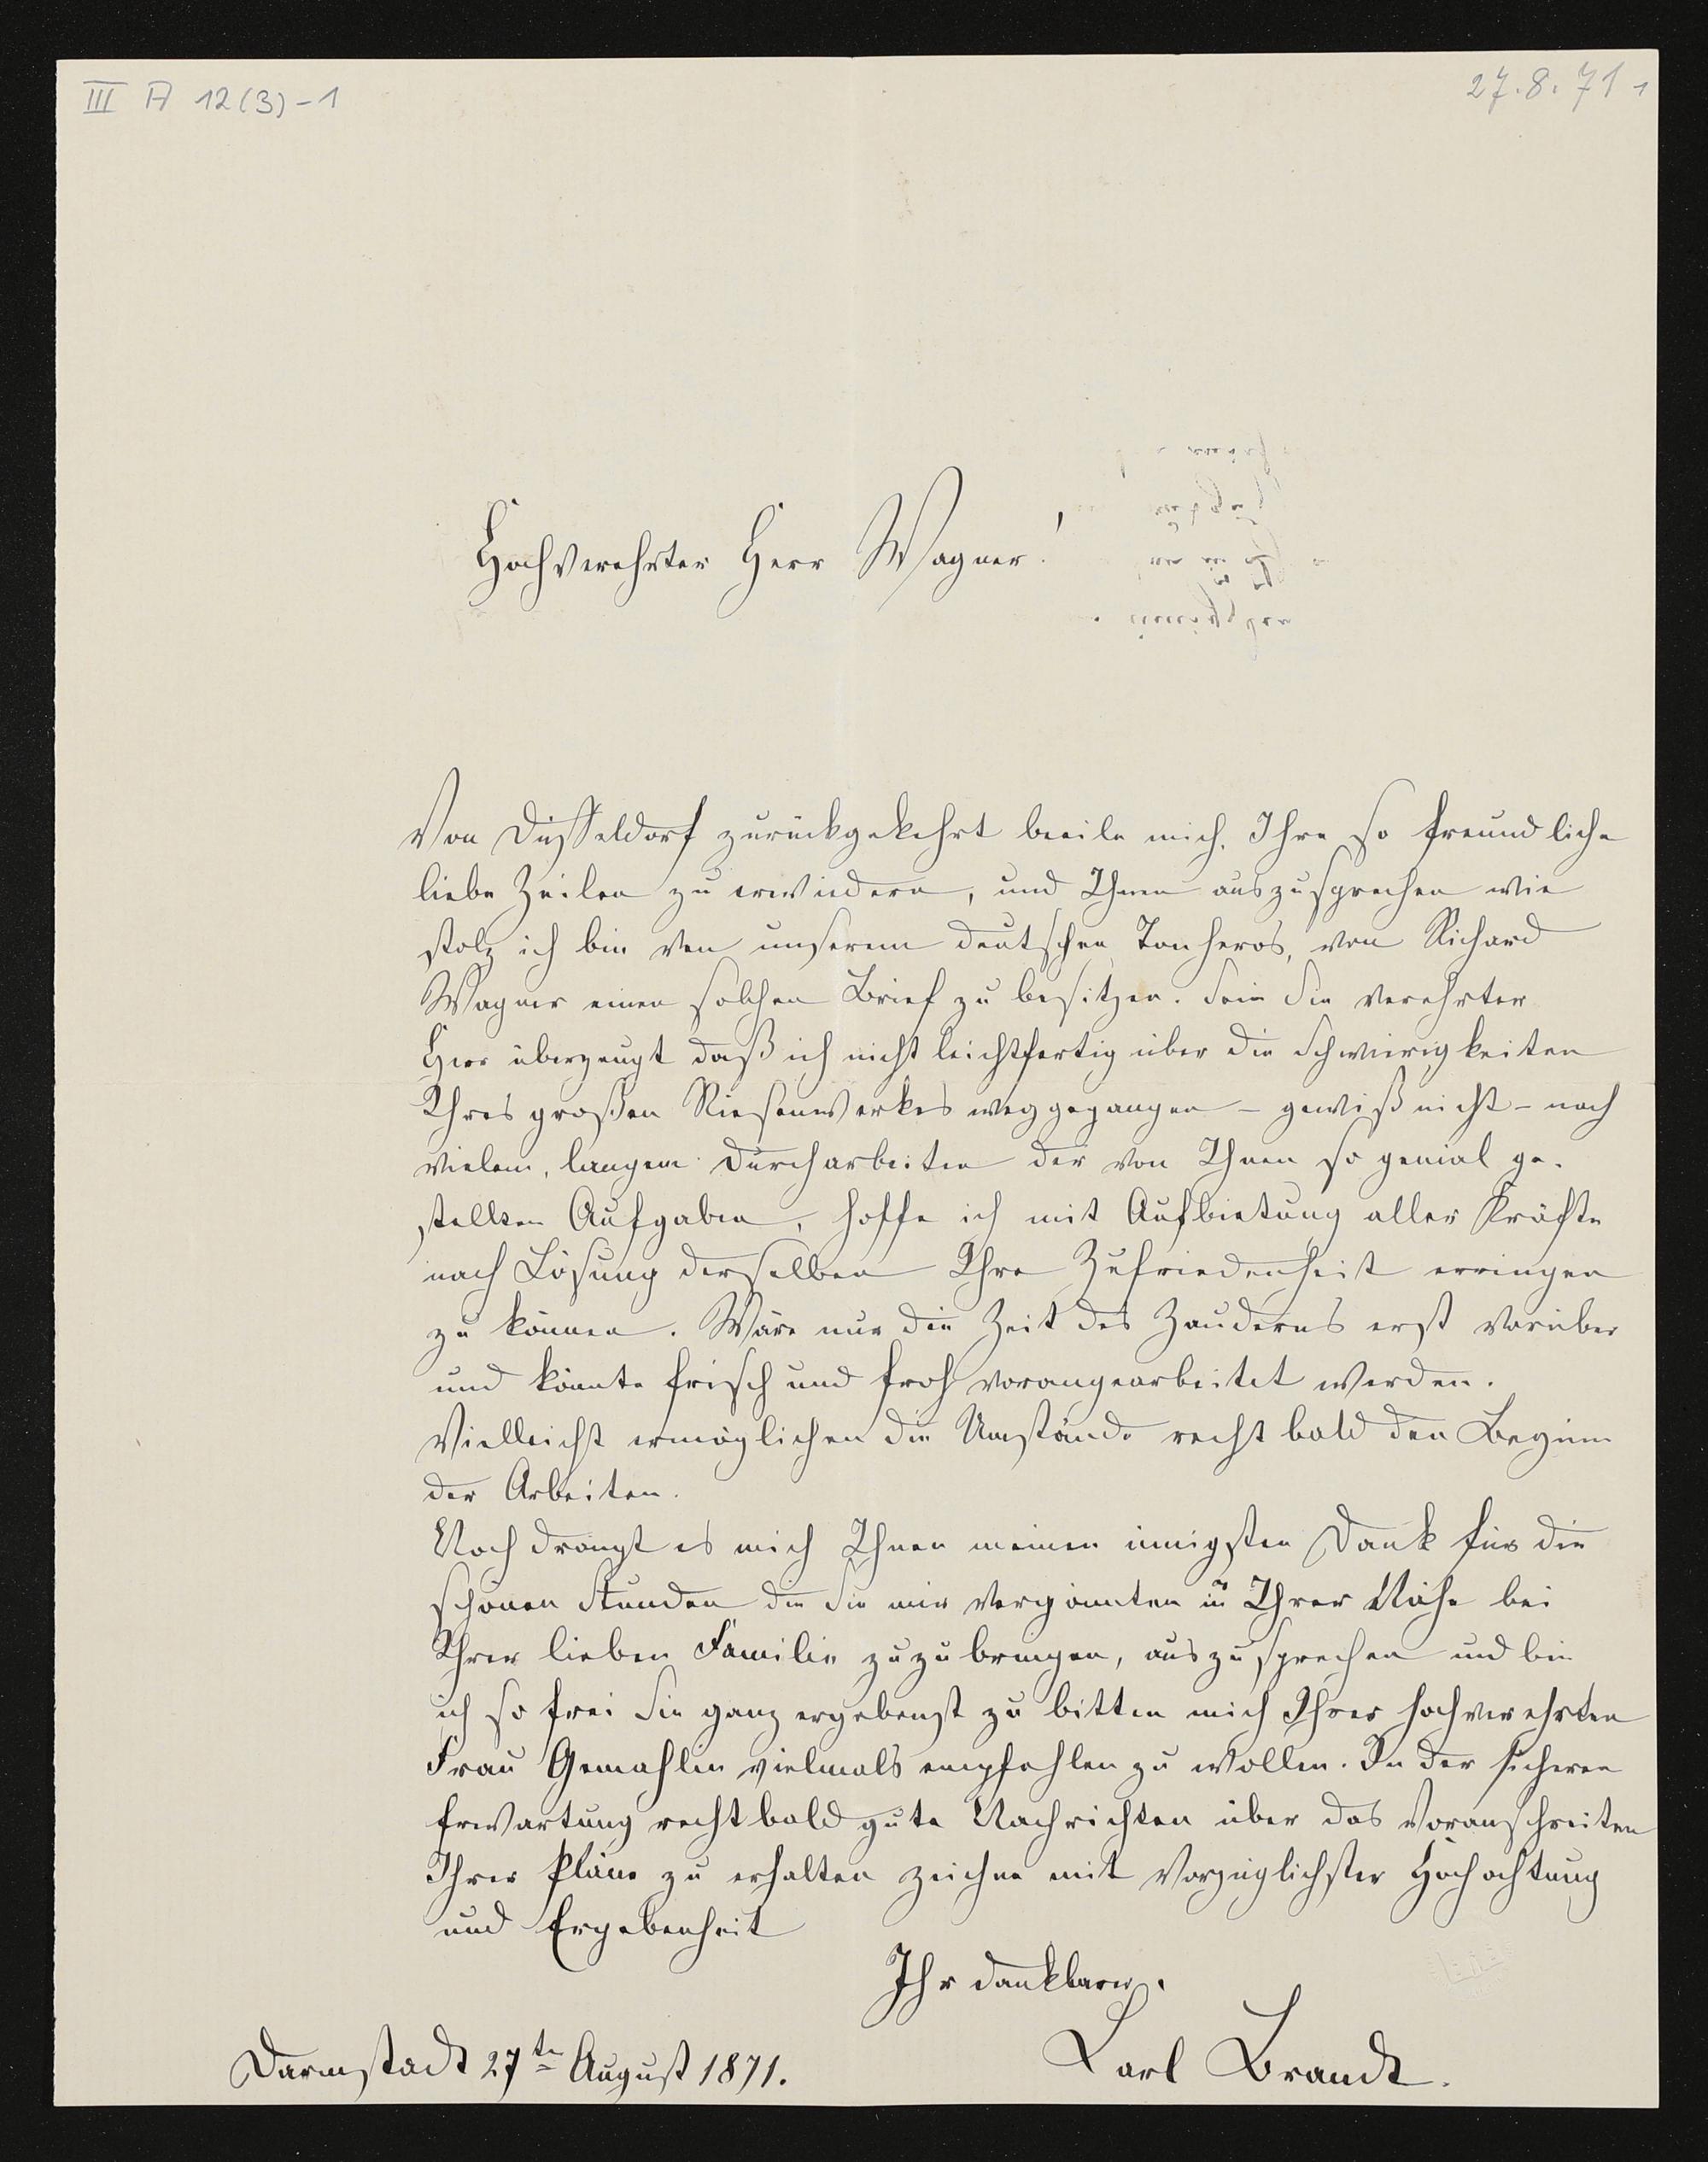 III A 12(3)-1
27.8.71 1
Hochverehrter Herr Wagner!
Von Düsseldorf zurückgekehrt beeile mich, Ihre so freundliche
liebe Zeilen zu erwiedern, und Ihnen auszusprechen wie
stolz ich bin von unserem deutschen Tonheros, von Richard
Wagner einen solchen Brief zu besitzen. Sein Sie verehrter
Herr überzeugt daß ich nicht leichtfertig über die Schwierigkeiten
Ihres großen Riesenwerkes weggegangen – gewiß nicht – nach
vielem, langem Durcharbeiten der von Ihnen so genial ge-
stellten Aufgaben, hoffe ich mit Aufbietung aller Kräfte
nach Lösung derselben Ihre Zufriedenheit erringen
zu können. Wäre nur die Zeit des Zauderns erst vorüber
und könnte frisch und froh vorangearbeitet werden.
Vielleicht ermöglichen die Umstände recht bald den Beginn
der Arbeiten.
Noch drängt es mich Ihnen meinen innigsten Dank für die
schönen Stunden die Sie mir vergönnten in Ihrer Nähe bei
Ihrer lieben Familie zuzubringen, auszusprechen und bin
ich so frei Sie ganz ergebenst zu bitten mich Ihrer hochverehrten
Frau Gemahlin vielmals empfehlen zu wollen. In der sicheren
Erwartung recht bald gute Nachrichten über das Voranschreiten
Ihrer Pläne zu erhalten zeichne mit vorzüglichster Hochachtung
und Ergebenheit
Ihr dankbarer.
Carl Brandt.
Darmstadt 27te August 1871.